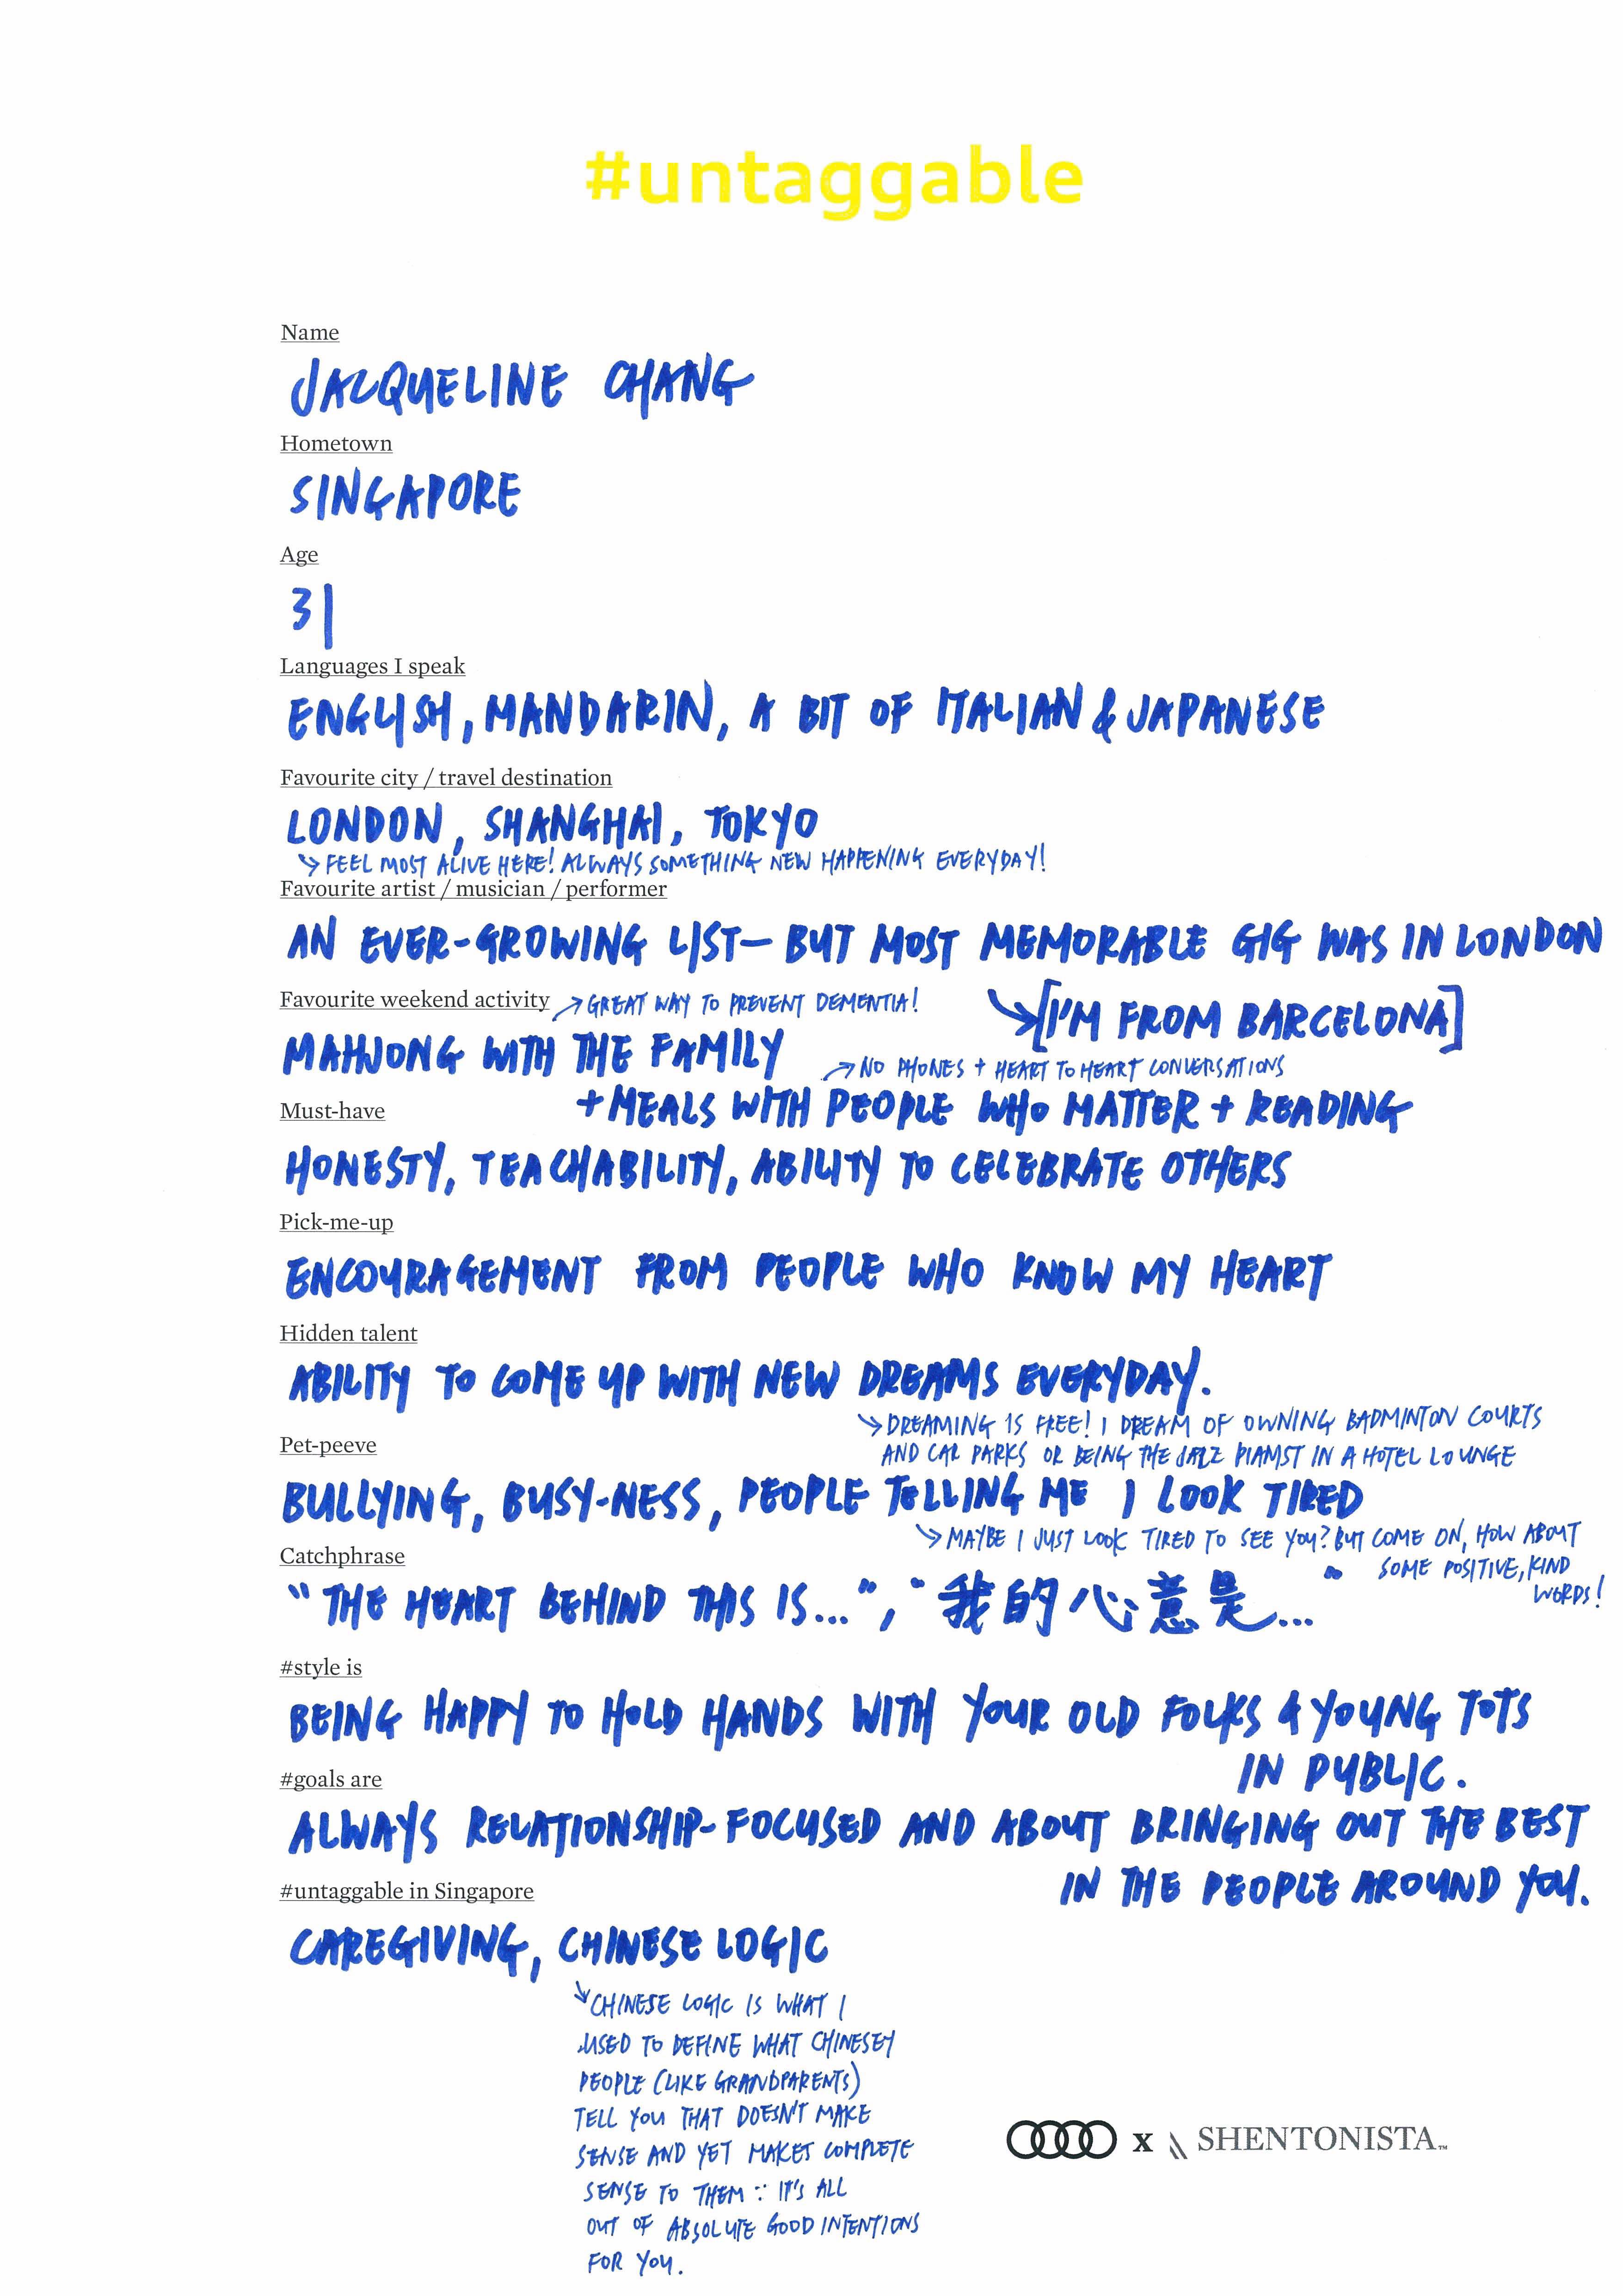 #untaggable
Name
JACQUELINE CHANG
Hometown
SINGAPORE
Age
31
Languages I speak
ENGLISH, MANDARIN, A BIT OF ITALIAN & JAPANESE
Favourite city / travel destination
LONDON, SHANGHAI, TOKYO
↳ FEEL MOST ALIVE HERE! ALWAYS SOMETHING NEW HAPPENING EVERYDAY!
Favourite artist / musician / performer
AN EVER-GROWING LIST— BUT MOST MEMORABLE GIG WAS IN LONDON
↘ [I'M FROM BARCELONA]
Favourite weekend activity
↗ GREAT WAY TO PREVENT DEMENTIA!
MAHJONG WITH THE FAMILY
↗ NO PHONES + HEART TO HEART CONVERSATIONS
+ MEALS WITH PEOPLE WHO MATTER + READING
Must-have
HONESTY, TEACHABILITY, ABILITY TO CELEBRATE OTHERS
Pick-me-up
ENCOURAGEMENT FROM PEOPLE WHO KNOW MY HEART
Hidden talent
ABILITY TO COME UP WITH NEW DREAMS EVERYDAY.
↳ DREAMING IS FREE! I DREAM OF OWNING BADMINTON COURTS
AND CAR PARKS OR BEING THE JAZZ PIANIST IN A HOTEL LOUNGE
Pet-peeve
BULLYING, BUSY-NESS, PEOPLE TELLING ME I LOOK TIRED
↳ MAYBE I JUST LOOK TIRED TO SEE YOU? BUT COME ON, HOW ABOUT
SOME POSITIVE, KIND
WORDS!
Catchphrase
"THE HEART BEHIND THIS IS...", "我的心意是..."
#style is
BEING HAPPY TO HOLD HANDS WITH YOUR OLD FOLKS & YOUNG TOTS
IN PUBLIC.
#goals are
ALWAYS RELATIONSHIP-FOCUSED AND ABOUT BRINGING OUT THE BEST
IN THE PEOPLE AROUND YOU.
#untaggable in Singapore
CAREGIVING, CHINESE LOGIC
↘ CHINESE LOGIC IS WHAT I
USED TO DEFINE WHAT CHINESEY
PEOPLE (LIKE GRANDPARENTS)
TELL YOU THAT DOESN'T MAKE
SENSE AND YET MAKES COMPLETE
SENSE TO THEM ∵ IT'S ALL
OUT OF ABSOLUTE GOOD INTENTIONS
FOR YOU.
x SHENTONISTA™